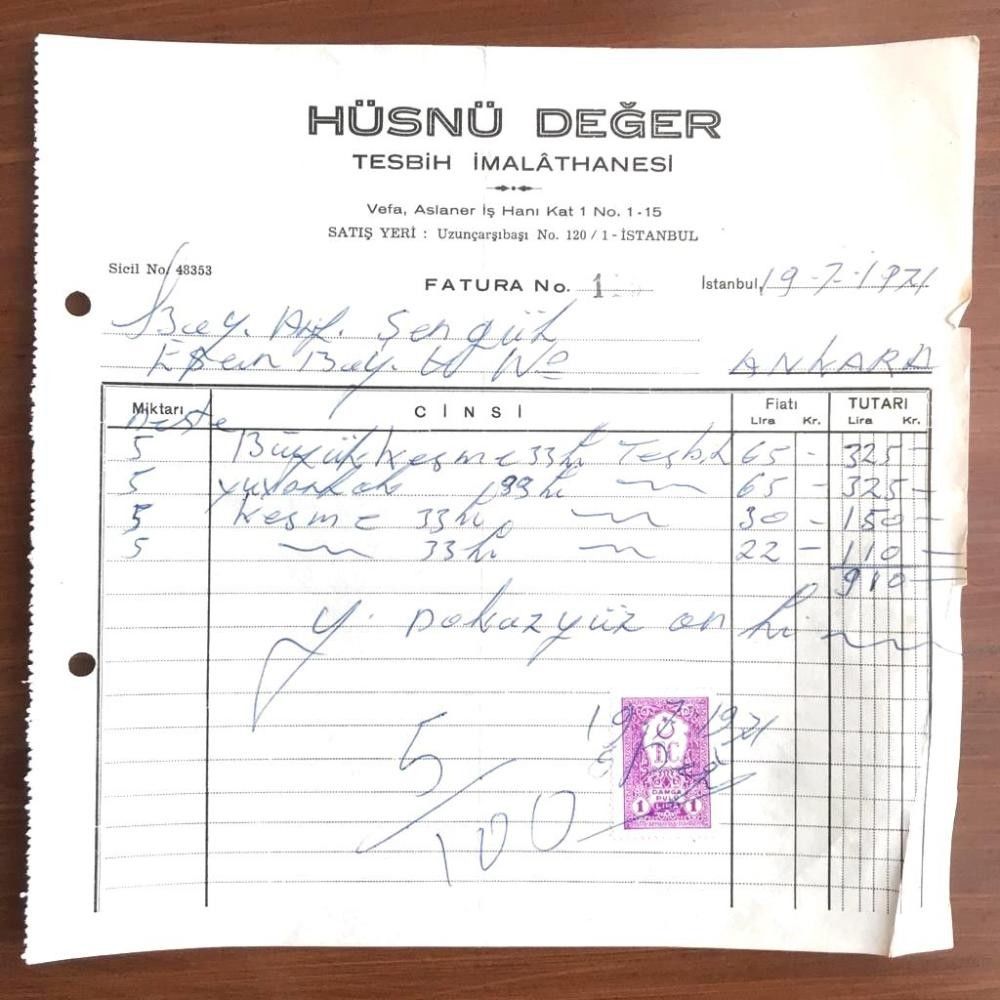 HÜSNÜ DEĞER
TESBİH İMALÂTHANESİ
Vefa, Aslaner İş Hanı Kat 1 No. 1-15
SATIŞ YERİ : Uzunçarşıbaşı No. 120 / 1 - İSTANBUL
Sicil No. 48353
FATURA No. 1
İstanbul, 19-7-1971
Bay. Şengül
Bay. No ANKARA
Miktarı CİNSİ Fiatı Lira Kr. TUTARI Lira Kr.
Deste
5 Büyük kesme 33 lü Tesbih 65 - 325 -
5 yuvarlak 99 lu 65 - 325 -
5 kesme 33 lü 30 - 150 -
5 33 lü 22 - 110 -
910 -
Y. Dokuzyüz on
19.7.1971
T.C
DAMGA PULU
1 LİRA 1
5/100